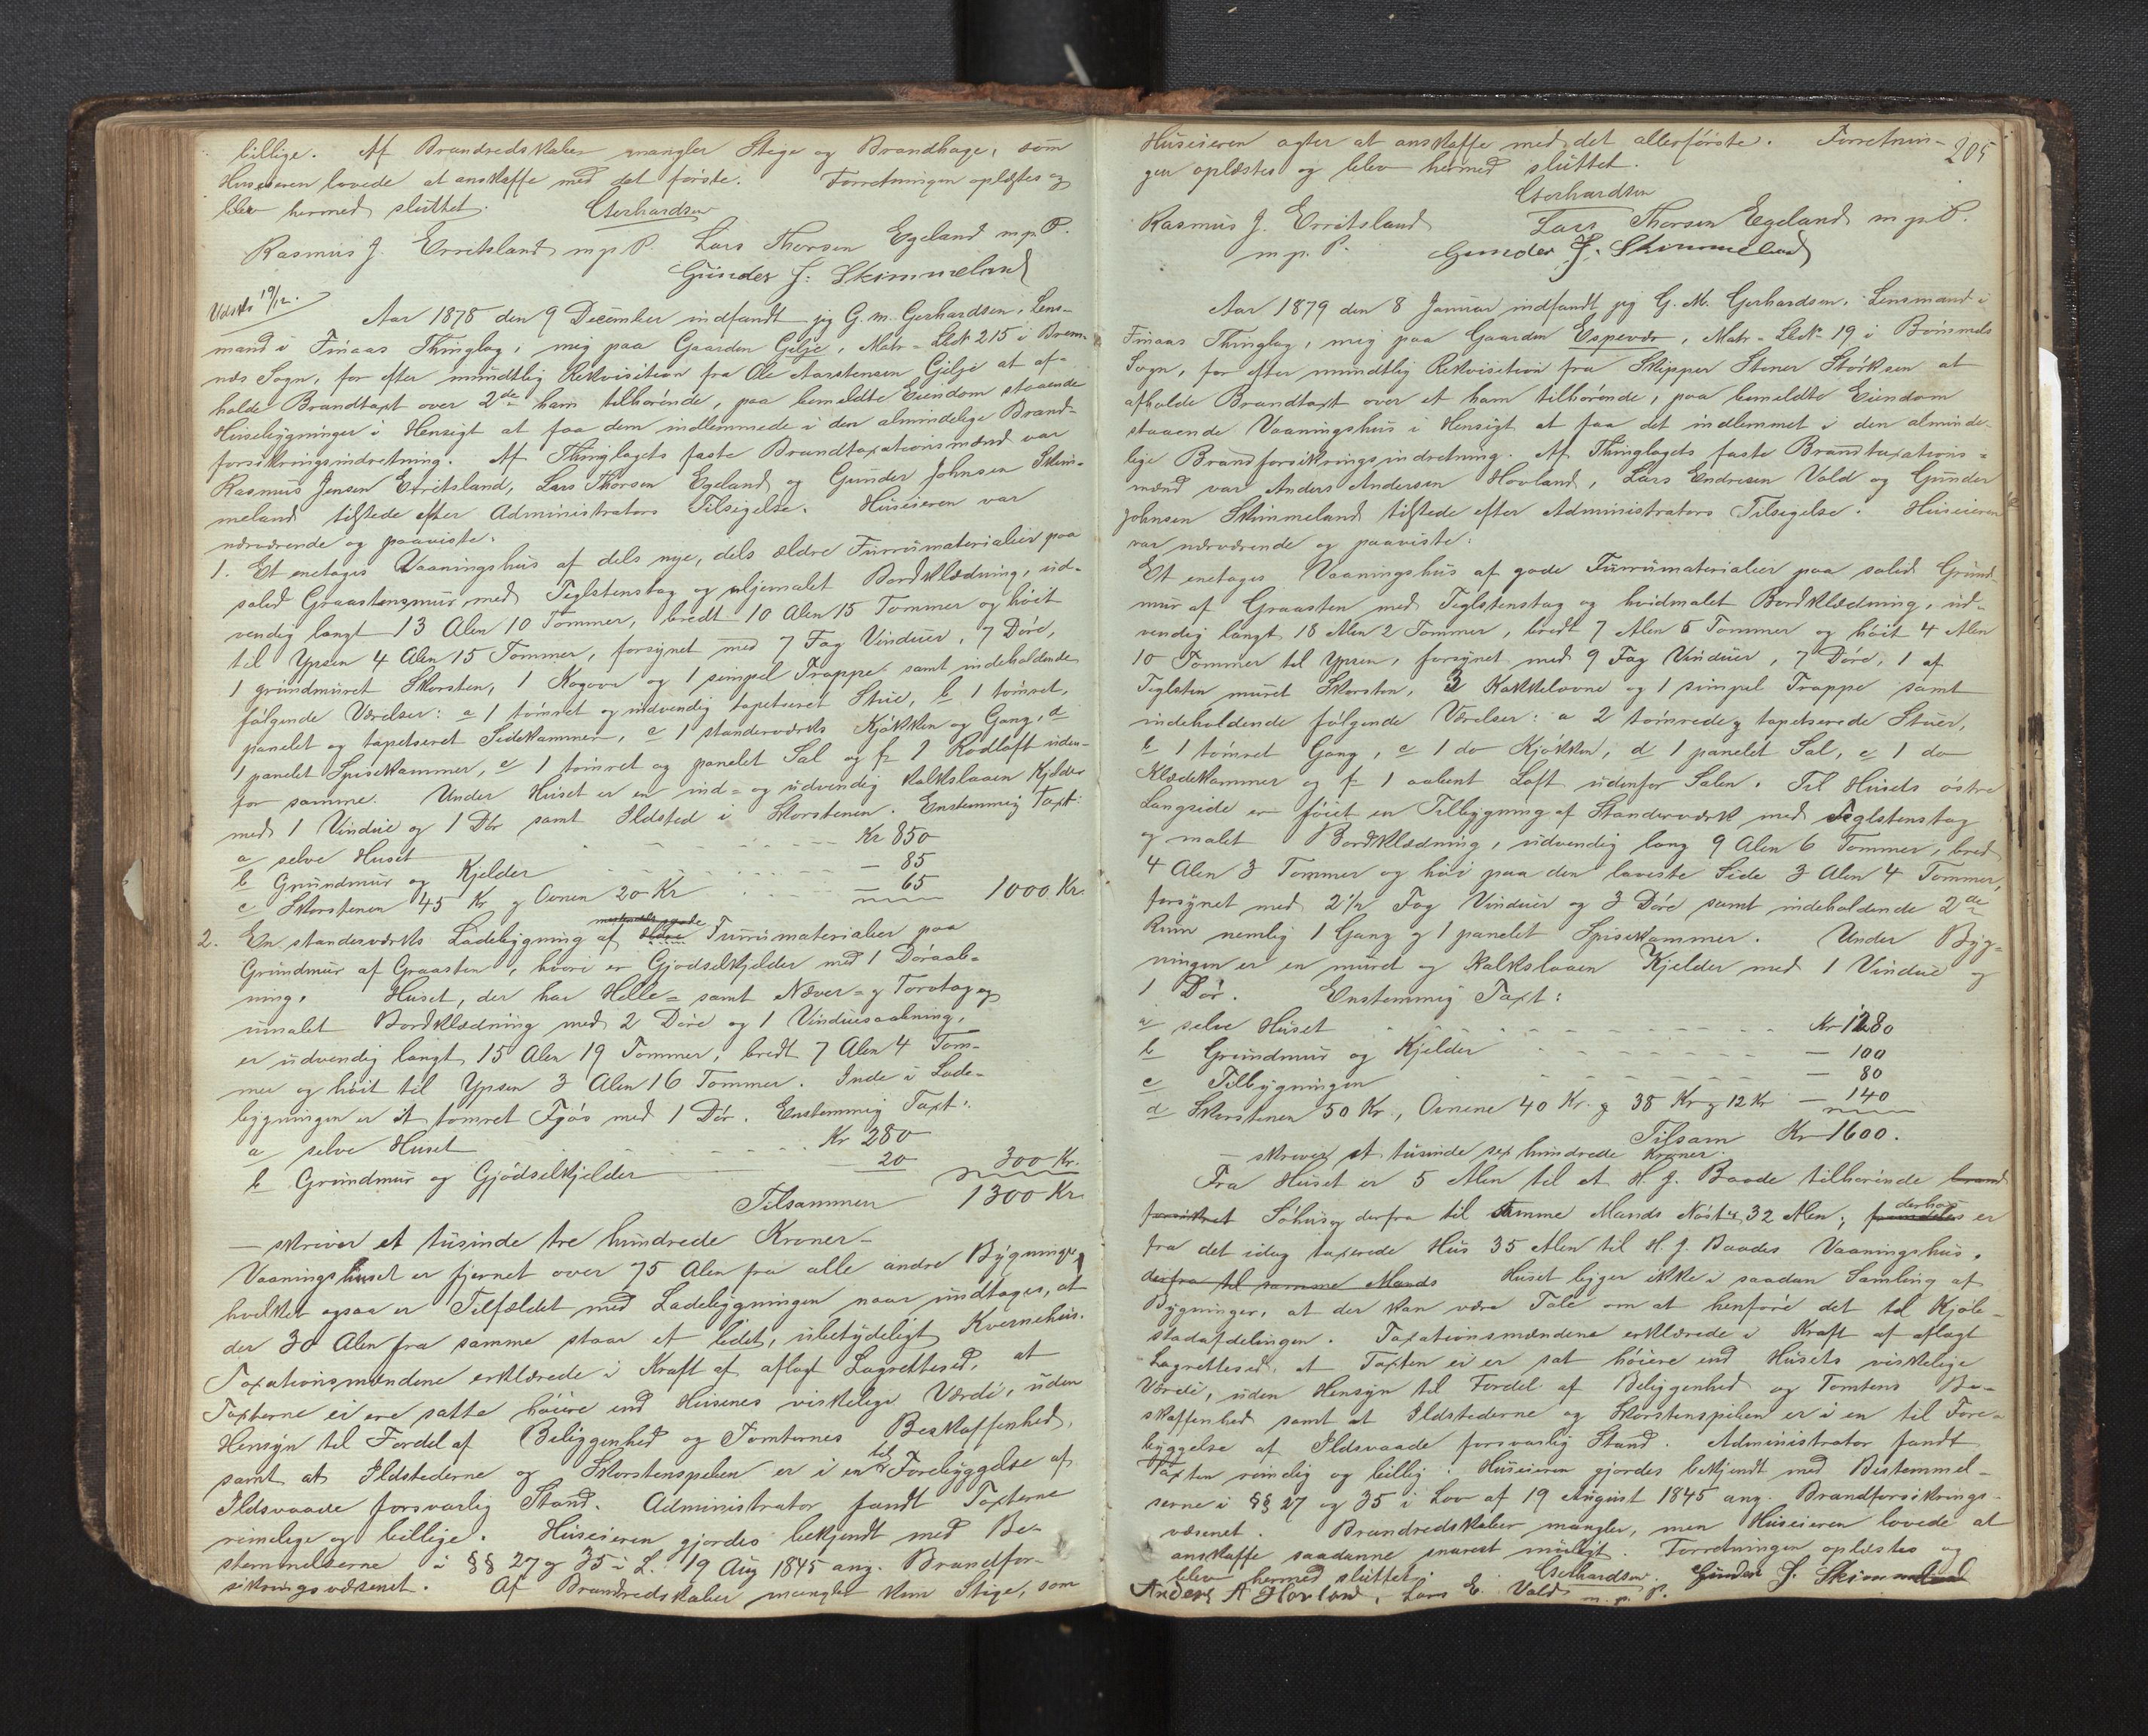 billige. Af Brandredskaber mangler Stige og Brandhage, som
Huseieren lovede at anskaffe med det første. Forretningen oplæstes og
blev hermed sluttet. Gerhardsen
Rasmus J. Erritsland m p. P. Lars Thorsen Egeland m p. P.
Gunder J. Skimmeland
Udstr 19/12.
Aar 1878 den 9 December indfandt jeg G. M. Gerhardsen, Lens-
mand i Finaas Thinglag, mig paa Gaarden Gilje, Matr-Løb No 215 i Brem-
næs Sogn, for efter mundtlig Rekvisition fra Ole Aarstensen Gilje at af-
holde Brandtaxt over 2de ham tilhørende, paa bemeldte Eiendom staaende
Husebygninger i Hensigt at faa dem indlemmede i den almindelige Brand-
forsikringsindretning. Af Thinglagets faste Brandtaxationsmænd var
Rasmus Jensen Erritsland, Lars Thorsen Egeland og Gunder Johnsen Skim-
meland tilstede efter Administrators Tilsigelse. Huseieren var
nærværende og paaviste:
1. Et enetages Vaaningshus af dels nye, dels ældre Furrumaterialier paa
solid Graastensmur med Teglstenstag og oljemalet Bordklædning, ud-
vendig langt 13 Alen 10 Tommer, bredt 10 Alen 15 Tommer og høit
til Ypsen 4 Alen 15 Tommer, forsynet med 7 Fag Vinduer, 7 Døre,
1 grundmuret Skorsten, 1 Kogovn og 1 simpel Trappe samt indeholdende
følgende Værelser: a 1 tømret og indvendig tapetseret Stue, b 1 tømret,
panelet og tapetseret Sidekammer, c 1 standerværks Kjøkken og Gang, d
1 panelet Spisekammer, e 1 tømret og panelet Sal og f 1 Rodloft uden-
for samme. Under Huset er en ind= og udvendig kalkslaaen Kjelder
med 1 Vindue og 1 Dør samt Ildsted i Skorstenen. Enstemmig Taxt:
a selve Huset Kr 850
b Grundmur og Kjelder — 85
c Skorstenen 45 Kr og Ovnen 20 Kr — 65 1000 Kr.
2. En standerværks Ladebygning af gode Furrumaterialier paa
Grundmur af Graasten, hvori er Gjødselkjelder med 1 Døraab-
ning. Huset, der har Helle= samt Næver= og Torvtag og
umalet Bordklædning med 2 Døre og 1 Vinduesaabning,
er udvendig langt 15 Alen 19 Tommer, bredt 7 Alen 4 Tom-
mer og høit til Ypsen 3 Alen 16 Tommer. Inde i Lade-
bygningen er et tømret Fjøs med 1 Dør. Enstemmig Taxt:
a selve Huset Kr 280
b Grundmur og Gjødselkjelder 20 300 Kr.
Tilsammen 1300 Kr.
— skriver et tusinde tre hundrede Kroner —
Vaaningshuset er fjernet over 75 Alen fra alle andre Bygninger,
hvilket ogsaa er Tilfældet med Ladebygningen naar undtages, at
der 30 Alen fra samme staar et lidet, ubetydeligt Kvernehus.
Taxationsmændene erklærede i Kraft af aflagt Lagretteed, at
Taxterne ei ere satte høiere end Husenes virkelige Værdi, uden
Hensyn til Fordel af Beliggenhed og Tomternes Beskaffenhed,
samt at Ildstederne og Skorstenspiben er i en til Forebyggelse af
Ildsvaade forsvarlig Stand. Administrator fandt Taxterne
rimelige og billige. Huseieren gjordes bekjendt med Be-
stemmelserne i §§ 27 og 35 i L. 19 Aug 1845 ang. Brandfor-
sikringsvæsenet. Af Brandredskaber mangler kun Stige, som
205
Huseieren agter at anskaffe med det allerførste. Forretnin-
gen oplæstes og blev hermed sluttet.
Gerhardsen
Rasmus J. Erritsland Lars Thorsen Egeland m p. P.
m p. P. Gunder J. Skimmeland
Aar 1879 den 8 Januar indfandt jeg G. M. Gerhardsen, Lensmand i
Finaas Thinglag, mig paa Gaarden Espevær, Matr-Løb No 19 i Bømmels
Sogn, for efter mundtlig Rekvisition fra Skipper Stener Størksen at
afholde Brandtaxt over et ham tilhørende, paa bemeldte Eiendom
staaende Vaaningshus i Hensigt at faa det indlemmet i den alminde-
lige Brandforsikringsindretning. Af Thinglagets faste Brandtaxations=
mænd var Anders Andersen Hovland, Lars Endresen Vold og Gunder
Johnsen Skimmeland tilstede efter Administrators Tilsigelse. Huseieren
var nærværende og paaviste:
Et enetages Vaaningshus af gode Furrumaterialier paa solid Grund-
mur af Graasten med Teglstenstag og hvidmalet Bordklædning, ud-
vendig langt 18 Alen 2 Tommer, bredt 7 Alen 5 Tommer og høit 4 Alen
10 Tommer til Ypsen, forsynet med 9 Fag Vinduer, 7 Døre, 1 af
Teglsten muret Skorsten, 3 Kakkelovne og 1 simpel Trappe samt
indeholdende følgende Værelser: a 2 tømrede og tapetserede Stuer,
b 1 tømret Gang, c 1 do Kjøkken, d 1 panelet Sal, e 1 do
Klædekammer og f 1 aabent Loft udenfor Salen. Til Husets østre
Langside er føiet en Tilbygning af Standerværk med Teglstenstag
og malet Bordklædning, udvendig lang 9 Alen 6 Tommer, bred
4 Alen 3 Tommer og høi paa den laveste Side 3 Alen 4 Tommer,
forsynet med 2 1/2 Fag Vinduer og 3 Døre samt indeholdende 2de
Rum nemlig 1 Gang og 1 panelet Spisekammer. Under Byg-
ningen er en muret og kalkslaaen Kjelder med 1 Vindue og
1 Dør. Enstemmig Taxt:
a selve Huset Kr 1280
b Grundmur og Kjelder — 100
c Tilbygningen — 80
d Skorstenen 50 Kr., Ovnene 40 Kr. og 38 Kr og 12 Kr — 140
Tilsam Kr 1600.
— skriver et tusinde sex hundrede Kroner.
Fra Huset er 5 Alen til et H. J. Baade tilhørende brand
forsikret Søhus og derfra til samme Mands Nøst 32 Alen; derhos er
fra det idag taxerede Hus 35 Alen til H. J. Baades Vaaningshus.
derfra til samme Mands Huset ligger ikke i saadan Samling af
Bygninger, at der kan være Tale om at henføre det til Kjøb-
stadafdelingen. Taxationsmændene erklærede i Kraft af aflagt
Lagretteed, at Taxten ei er sat høiere end Husets virkelige
Værdi, uden Hensyn til Fordel af Beliggenhed og Tomtens Be-
skaffenhed samt at Ildstederne og Skorstenspiben er i en til Fore-
byggelse af Ildsvaade forsvarlig Stand. Administrator fandt
Taxten rimelig og billig. Huseieren gjordes bekjendt med Bestemmel-
serne i §§ 27 og 35 i Lov af 19 August 1845 ang. Brandforsikrings-
væsenet. Brandredskaber mangler, men Huseieren lovede at
anskaffe saadanne snarest muligt. Forretningen oplæstes og
blev hermed sluttet. Gerhardsen. Gunder J. Skimmeland
Anders A Hovland, Lars E. Vold m. p. P.